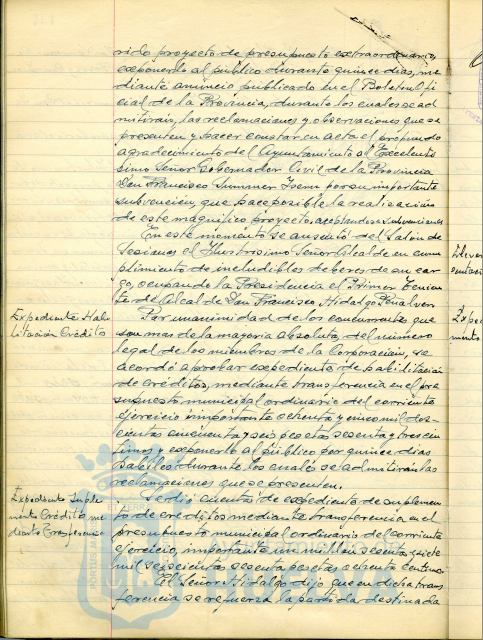 rido proyecto de presupuesto extraordinario,
exponerlo al público durante quince dias, me
diante anuncio publicado en el Boletin Ofi
cial de la Provincia, durante los cuales se ad
mitirais, las reclamaciones y observaciones que se
presenten y hacer constar en acta el profundo
agradecimiento del Ayuntamiento al Excelenti
simo Señor Gobernador Civil de la Provincia
Don Francisco Summer Isern por su importante
subvencion, que hace posible la realización
de este magnifico proyecto, aceptandose subvenciones
En este momento se ausentó del Salón de
Sesiones el Ilustrisimo Señor Alcalde en cum
plimiento de ineludibles deberes de su car
go, ocupando la Presidencia el Primer Tenien
te de Alcalde Don Francisco Hidalgo Peñalver.
Expediente Habi
litación Crédito
Por unanimidad de los concurrentes que
son mas de la mayoria absoluta, del número
legal de los miembros de la Corporación, se
acordó aprobar expediente de habilitación
de créditos, mediante transferencia en el pre
supuesto municipal ordinario del corriente
ejercicio importante ochenta y cinco mil dos-
cientas cincuenta y seis pesetas sesenta y tres cen
timos y exponerlo al público por quince dias
habiles durante los cuales se admitirán las
reclamaciones que se presenten.
Expediente Suple
mento Crédito me
diante Trasferencia
Se dió cuenta de expediente de suplemen
to de créditos mediante transferencia en el
presupuesto municipal ordinario del corriente
ejercicio, importante un millón sesenta y siete
mil seiscientas sesenta pesetas ochenta centimos
El Señor Hidalgo dijo que en dicha trans
ferencia se refuerza la partida destinada